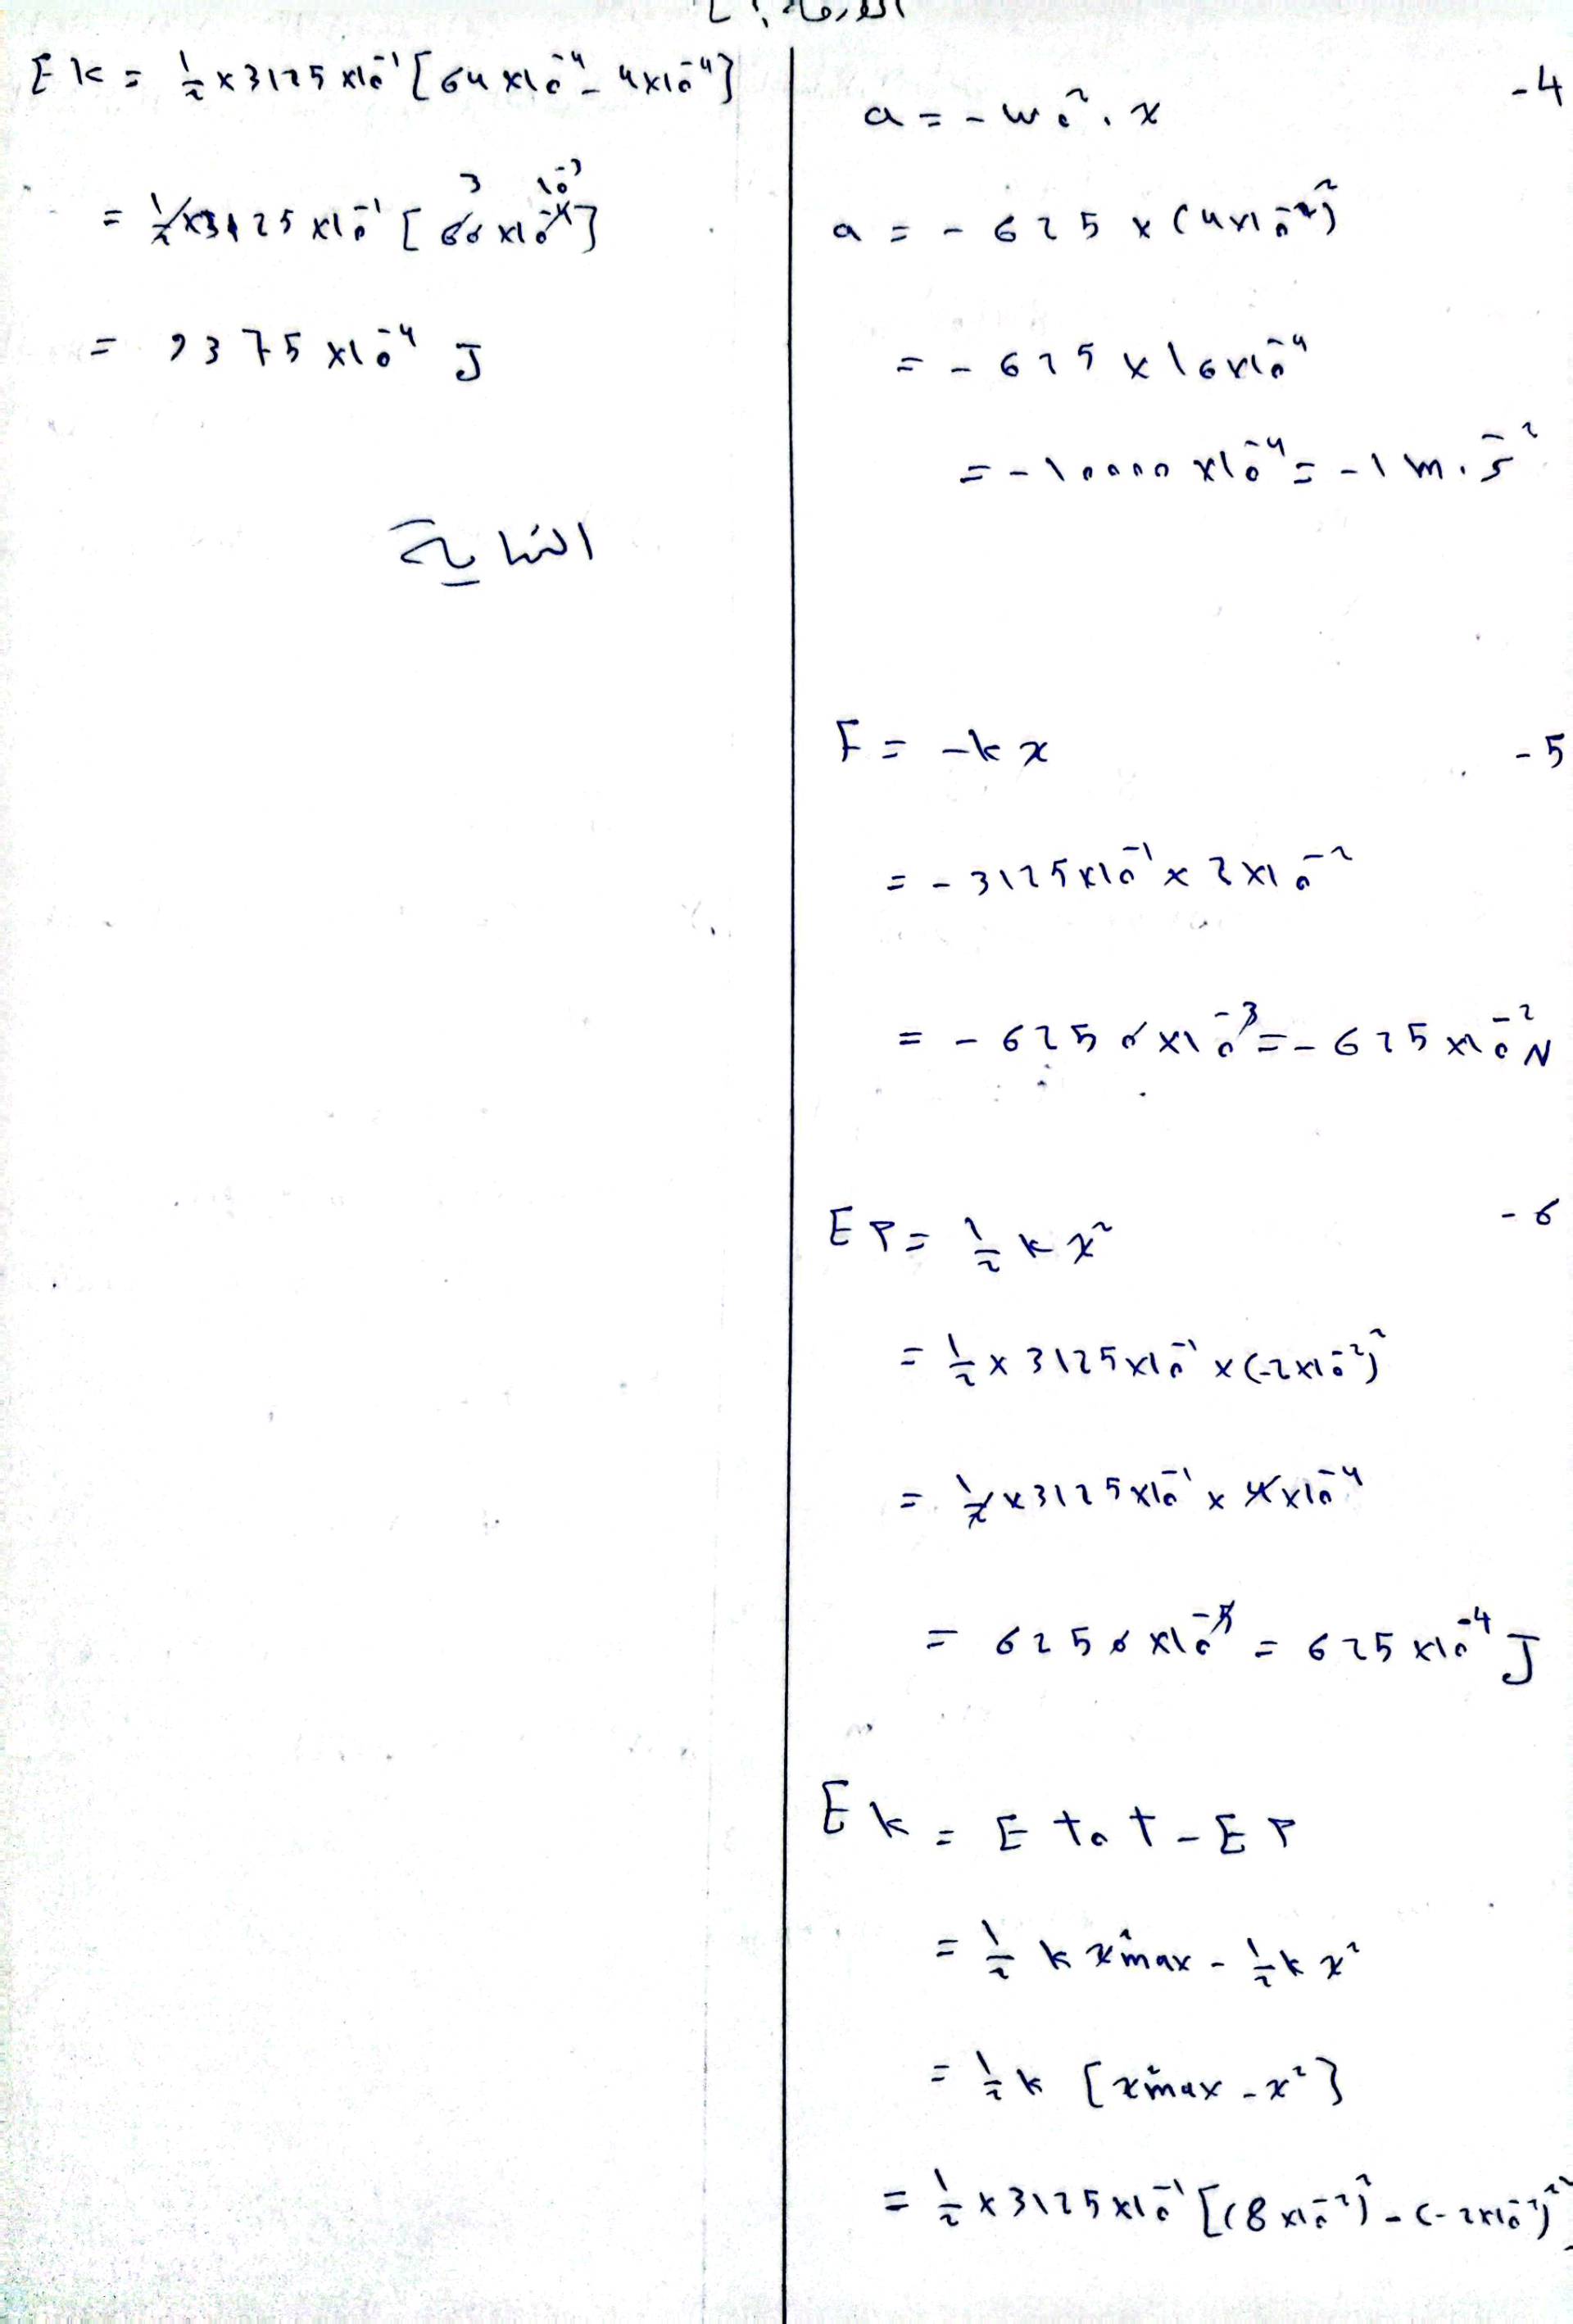 -4
a = - ω₀² . x
a = - 625 × (4×10⁻²)²
= - 625 × 16×10⁻⁴
= - 10000 ×10⁻⁴ = -1 m.s⁻²
-5
F = -k x
= - 3125×10⁻¹ × 2×10⁻²
= - 6250 ×10⁻³ = - 625 ×10⁻² N
-6
EP = 1/2 k x²
= 1/2 × 3125×10⁻¹ × (-2×10⁻²)²
= 1/2 × 3125×10⁻¹ × 4×10⁻⁴
= 6250 ×10⁻⁵ = 625 ×10⁻⁴ J
Ek = E tot - EP
= 1/2 k x²max - 1/2 k x²
= 1/2 k [x²max - x²]
= 1/2 × 3125×10⁻¹ [(8×10⁻²)² - (-2×10⁻²)²]
Ek = 1/2 × 3125 ×10⁻¹ [64 ×10⁻⁴ - 4×10⁻⁴]
= 1/2 × 3125 ×10⁻¹ [60 ×10⁻⁴] 3 10⁻³
= 9375 ×10⁻⁴ J
النهاية